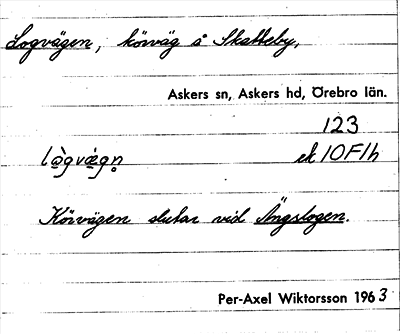 Logvägen, körväg å Skatteby,
Askers sn, Askers hd, Örebro län.
123
lògvæ̀gn̥ ek 10F1h
Körvägen slutar vid Ängslogen.
Per-Axel Wiktorsson 1963